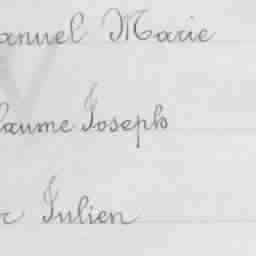 anuel Marie
laume Joseph
Julien